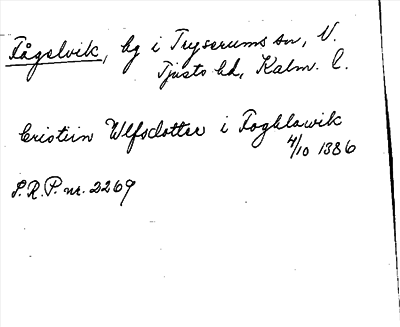 Fågelvik, hg i Tryserums sn, N.
Tjusts hd, Kalm. l.
Cristiin Ulfsdotter i Foghlawik
4/10 1386
S.R.P. nr. 2269